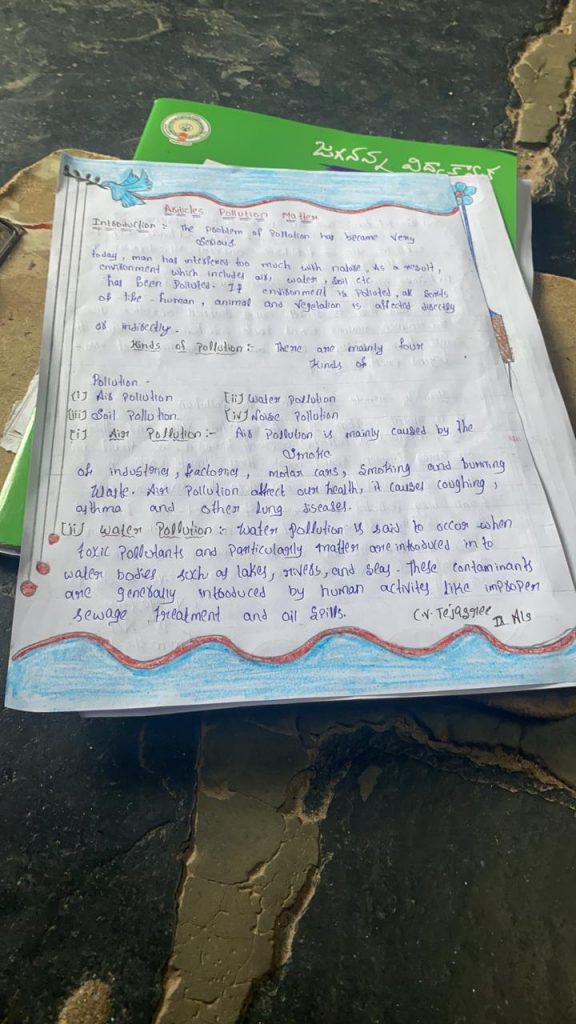 జగనన్న విద్యా కానుక
Articles Pollution Matter
Introduction :- The problem of Pollution has became very
serious
today, man has interfered too much with nature. As a result,
environment which includes air, water, Soil etc.
has Been Polluted. If environment is Polluted, all sorts
of the human, animal and vegetation is affected directly
or indirectly.
Kinds of Pollution :- There are mainly four
Kinds of
Pollution -
(i) Air Pollution [ii] Water Pollution
(iii) Soil Pollution [iv] Noise Pollution
[i] Air Pollution :- Air Pollution is mainly caused by the
Smoke
of industories, fractories, motar cars, Smoking and burning
Waste. Air Pollution affect our health, it causes coughing,
asthma and other lung diseases.
[ii] Water Pollution :- Water pollution is said to occur when
toxic Pollutants and Particularly matter are introduced in to
water bodies such of lakes, rivers, and seas. These contaminants
are generally introduced by human activites like improper
sewage, treatment and oil Spills.
C.V. Tejasree